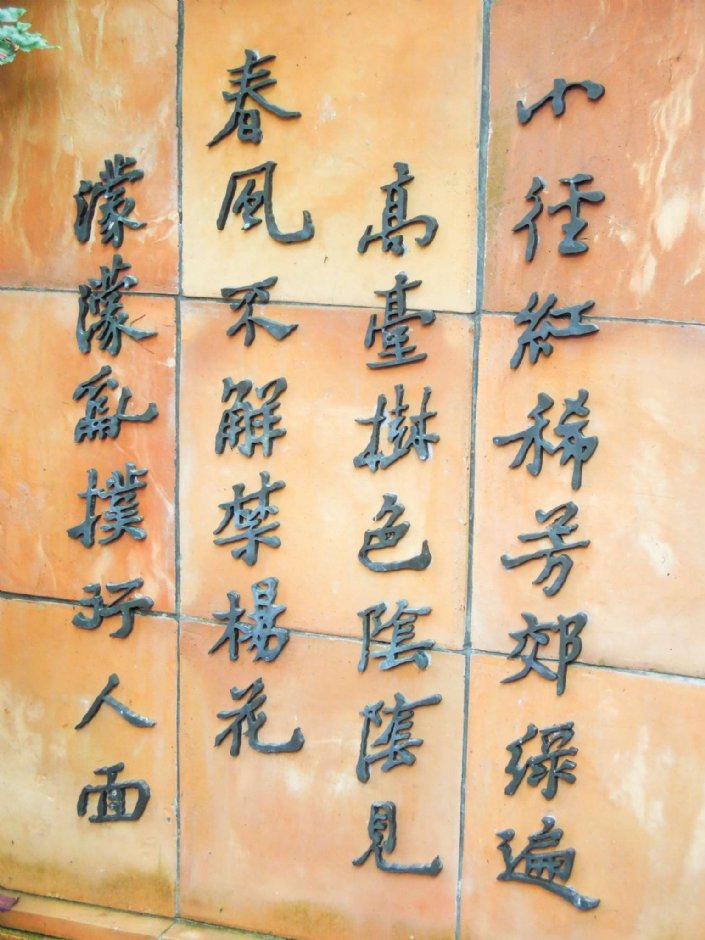 小徑紅稀芳郊綠遍
高臺樹色陰陰見
春風不解禁楊花
濛濛亂撲行人面